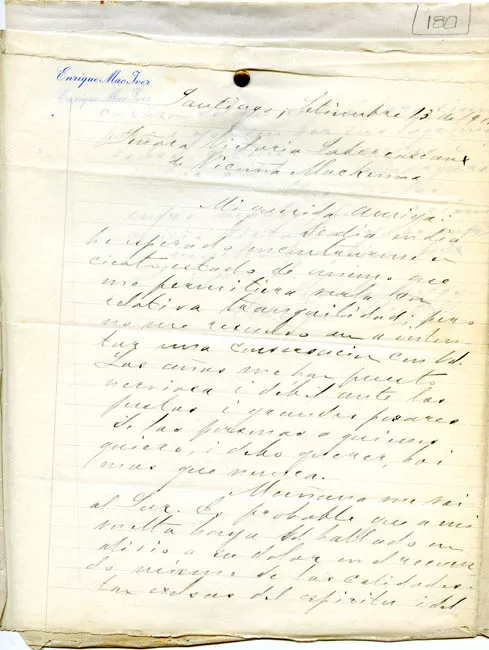 180
Enrique Mac Iver
Santiago, Setiembre 13 de 191
Señora Victoria Subercaseaux
de Vicuña Mackenna
Mi querida amiga:
De dia en dia
he esperado encontrarme en
cierto estado de animo que
me permitiera con
relativa tranquilidad; pero
no me resuelvo aun a inten
tar una conversacion con Ud.
Los años me han puesto
nervioso i débil ante las
justas i grandes pesares
de las personas a quienes
quiero, i debo querer, hoi
mas que nunca.
Mañana me voi
al Sur. Es probable que a mi
vuelta haya Ud. hallado un
alivio a su dolor en el recuer
do mismo de las calidades
tan excelsas del espíritu i del